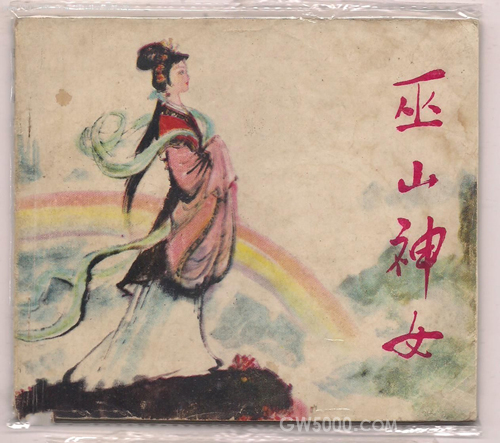 巫山神女
GW5000.COM